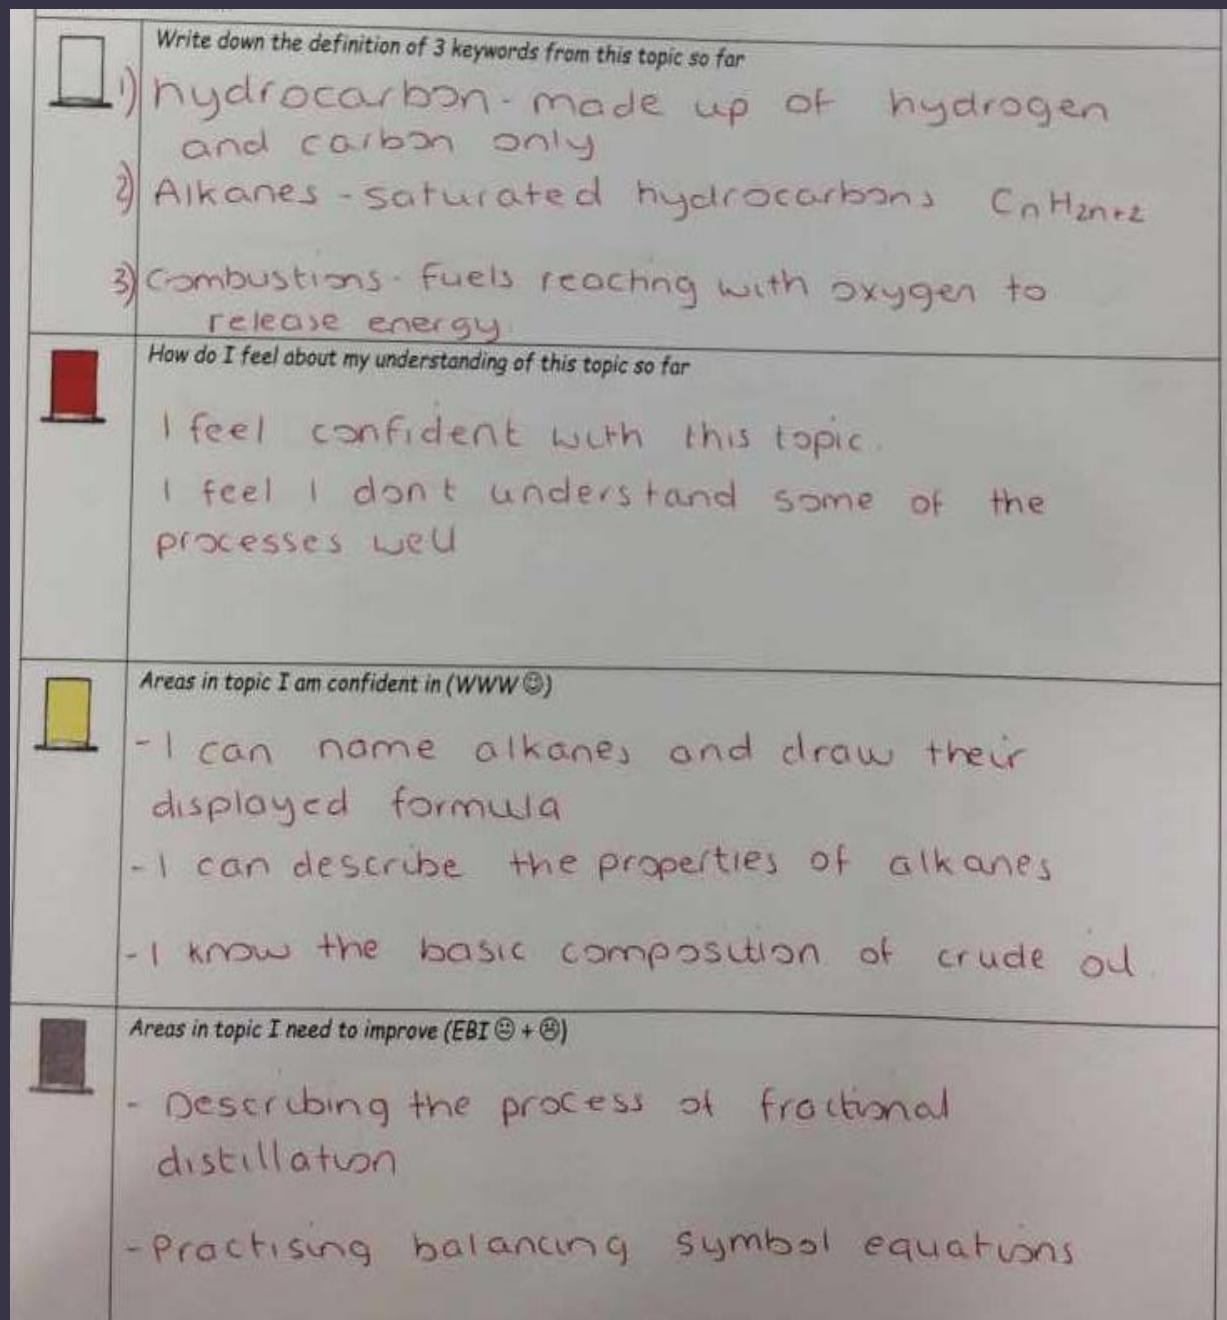 Write down the definition of 3 keywords from this topic so far
1) hydrocarbon - made up of hydrogen
and carbon only
2) Alkanes - saturated hydrocarbons CnH2n+2
3) Combustions - fuels reacting with oxygen to
release energy.
How do I feel about my understanding of this topic so far
I feel confident with this topic.
I feel I don't understand some of the
processes well
Areas in topic I am confident in (WWW ☺)
- I can name alkanes and draw their
displayed formula
- I can describe the properties of alkanes
- I know the basic composition of crude oil.
Areas in topic I need to improve (EBI 😐 + ☹)
- Describing the process of fractional
distillation
- Practising balancing symbol equations